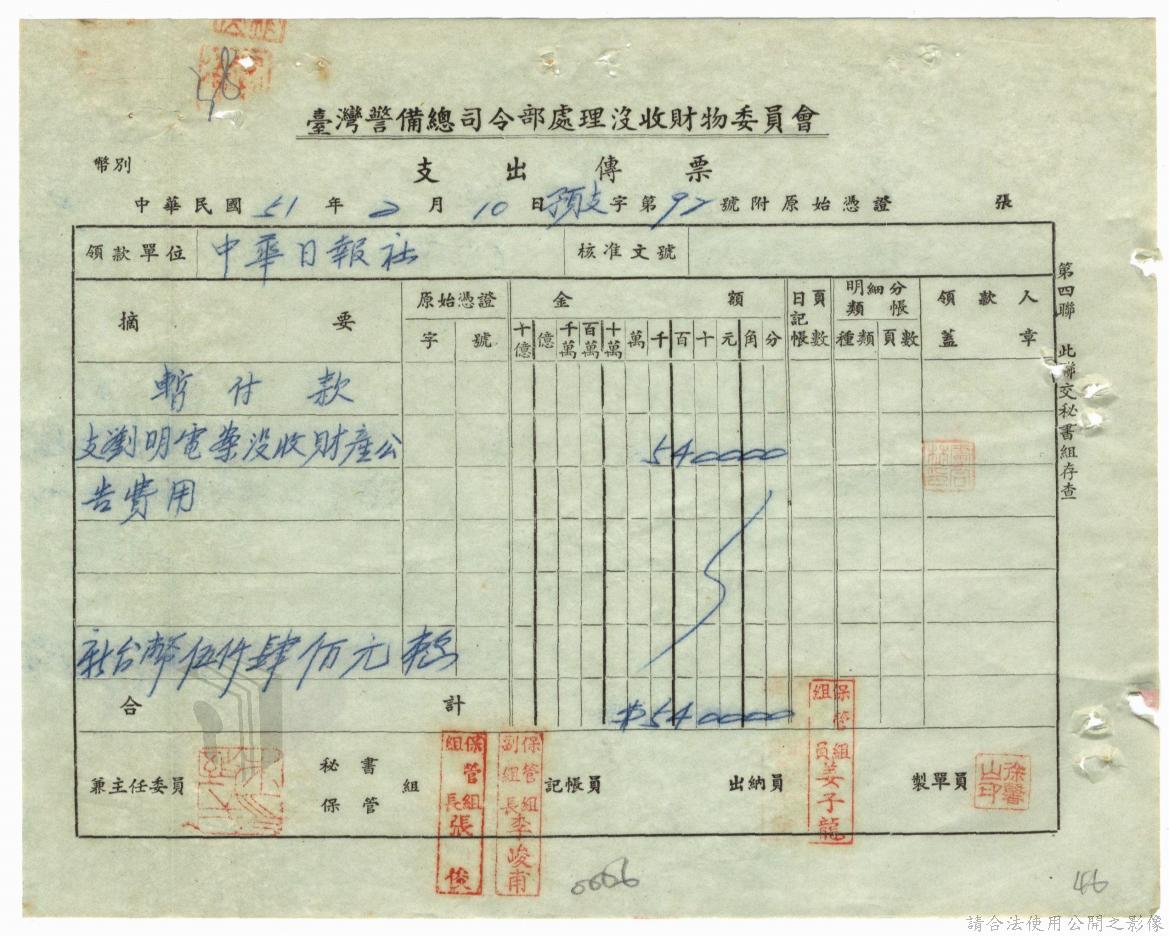 臺灣警備總司令部處理沒收財物委員會
幣別
支出傳票
中華民國51年2月10日預支字第92號附原始憑證 張
領款單位 中華日報社 核准文號
摘要 原始憑證 金額 日記帳頁數 明細分類帳 領款人蓋章
字 號 十億 億 千萬 百萬 十萬 萬 千 百 十 元 角 分 種類 頁數
暫付款
支劉明電案沒收財產公 540000
告費用
新台幣伍仟肆佰元整
合計 $540000
兼主任委員 秘書 保管 組 記帳員 出納員 製單員
保管組組長張俊
保管組副組長李峻甫
保管組組員姜子龍
徐馨山印
第四聯 此聯交秘書組存查
0066
46
請合法使用公開之影像